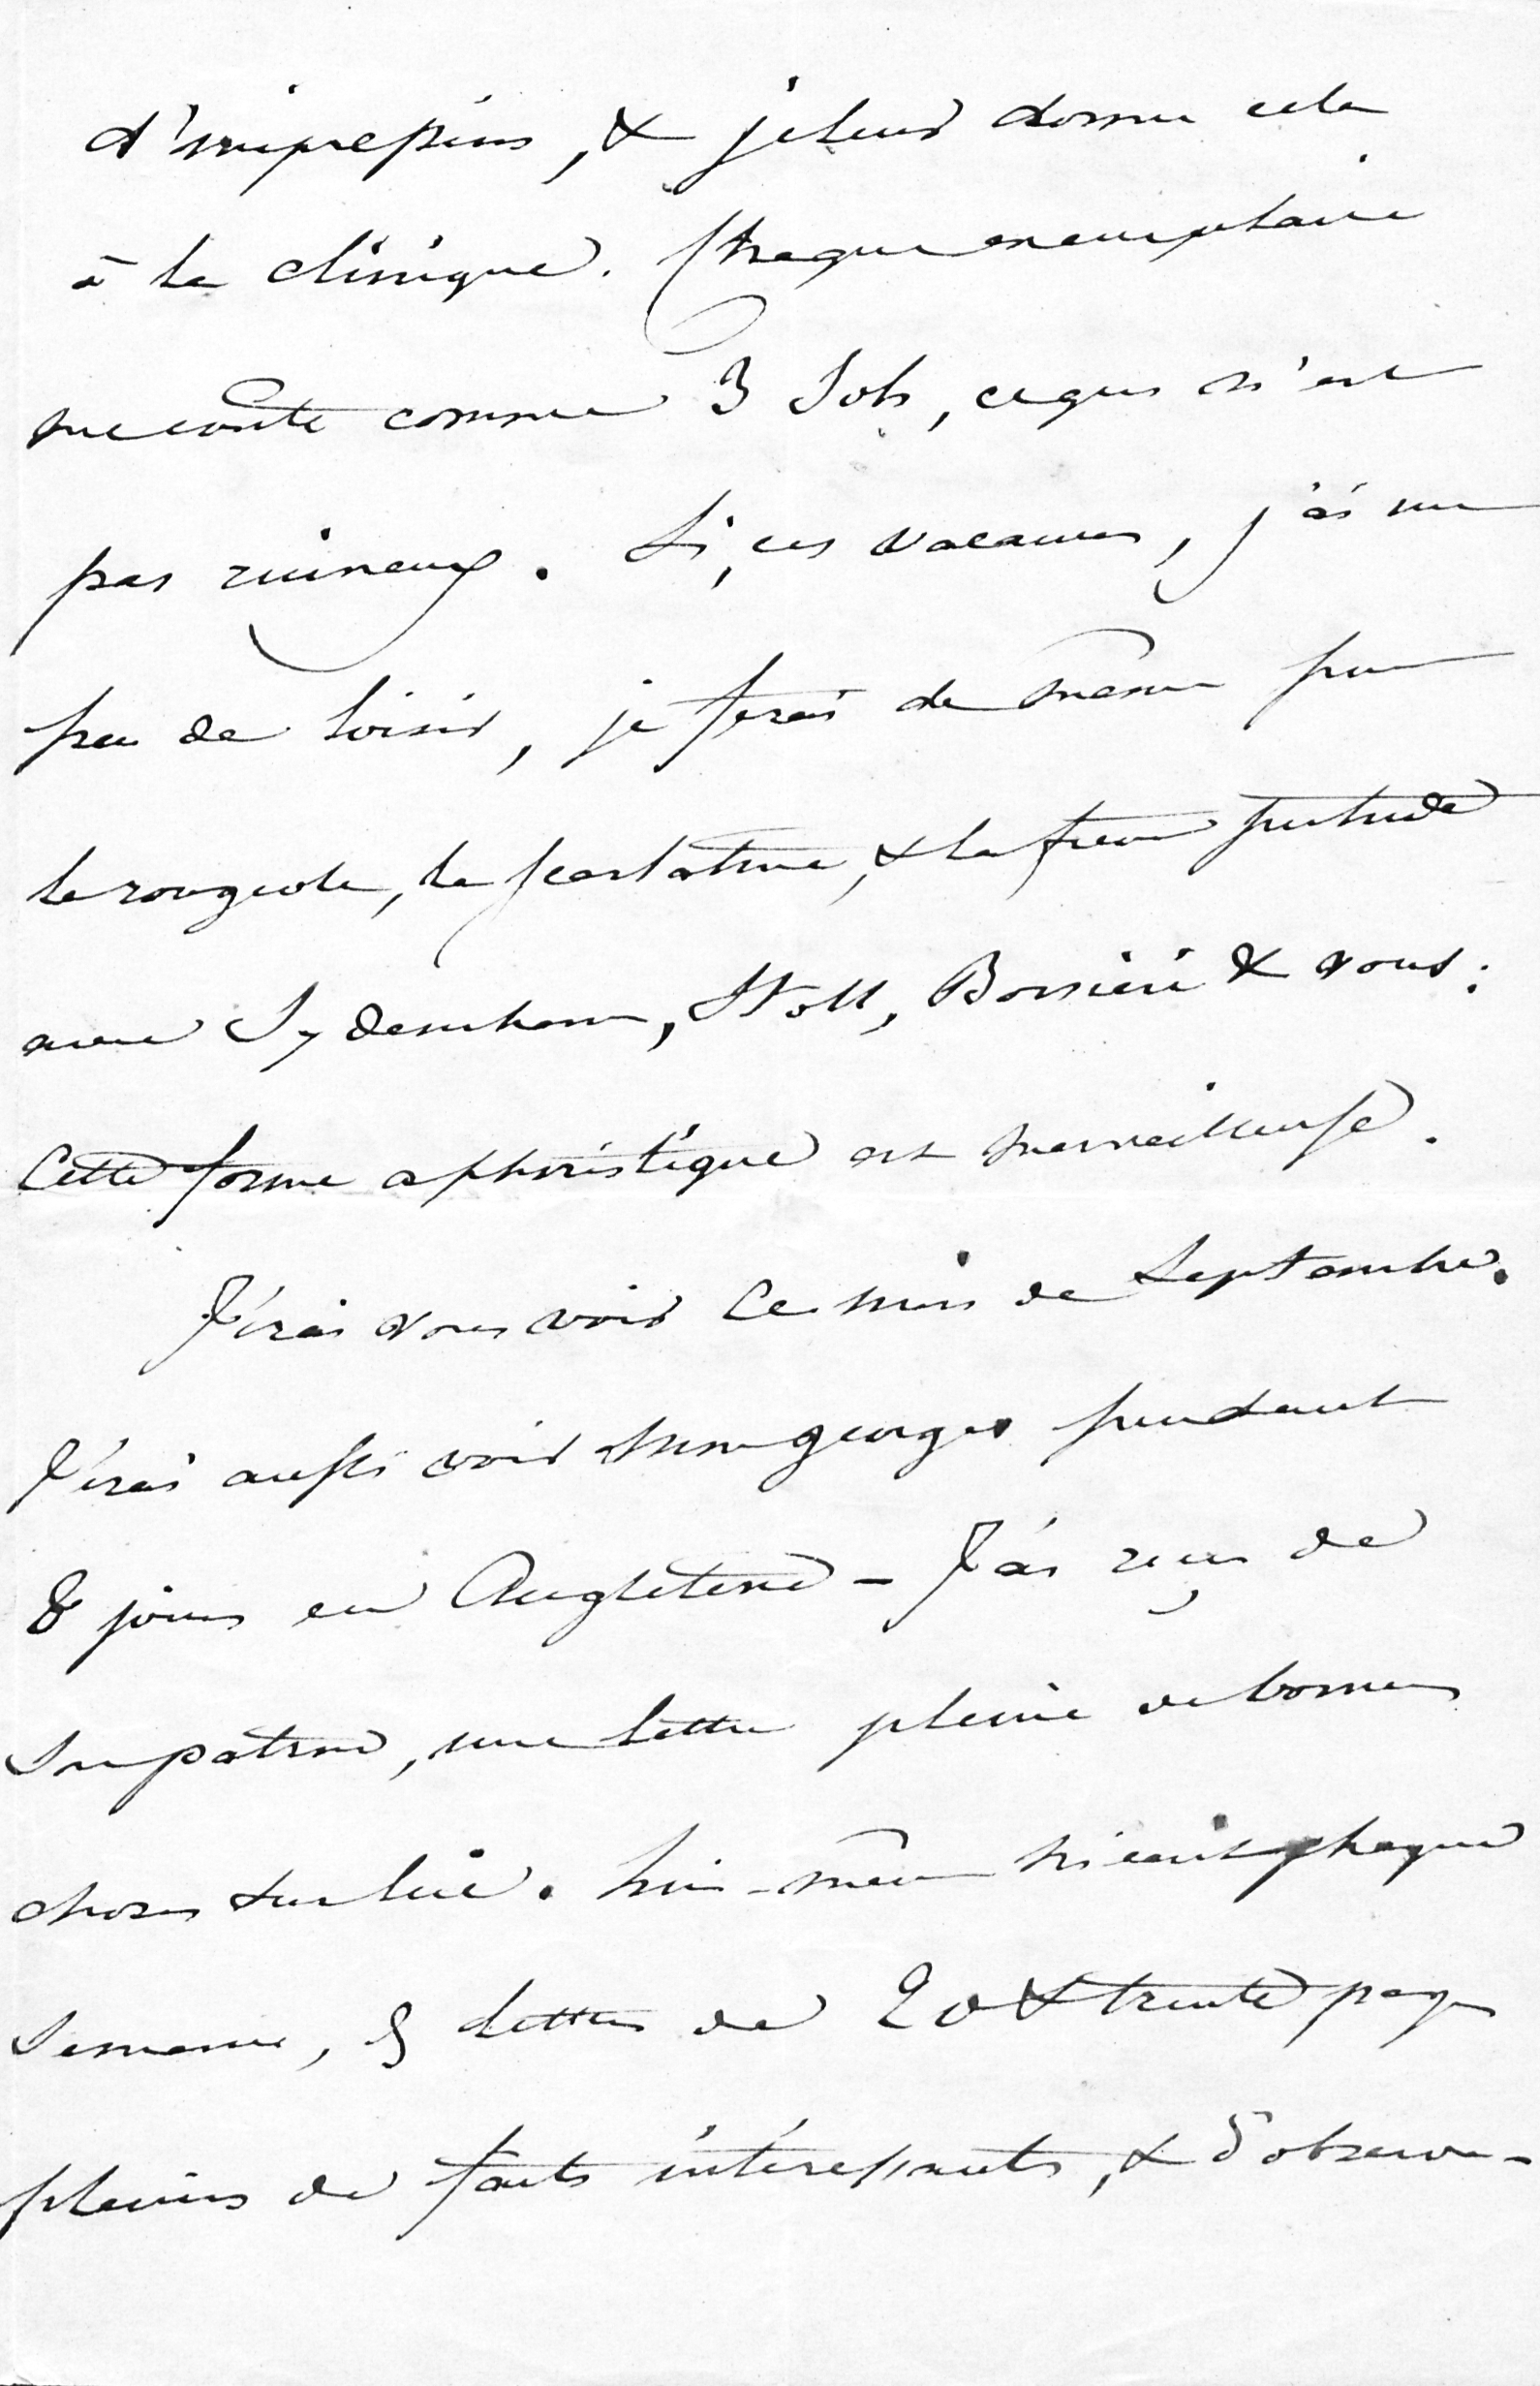 d'impression, & je leur donne cela
à la clinique. Chaque exemplaire
me coute comme 3 Sols, ce qui n'est
pas ruineux. Si, ces vacances, j'ai un
peu de loisir, je ferai de même pour
la rougeole, la scarlatine, & la fièvre putride
avec Sydenham, Stoll, Borsieri & vous.
Cette forme aphoristique est merveilleuse.
J'irai vous voir ce mois de Septembre.
J'irai aussi voir mon georges pendant
8 jours en Angleterre - J'ai reçu de
son patron, une lettre pleine de bonnes
choses sur lui. Lui-même m'écrit chaque
Semaine, des lettres de 20 & trente pages
pleines de faits intéressants, & d'observa-